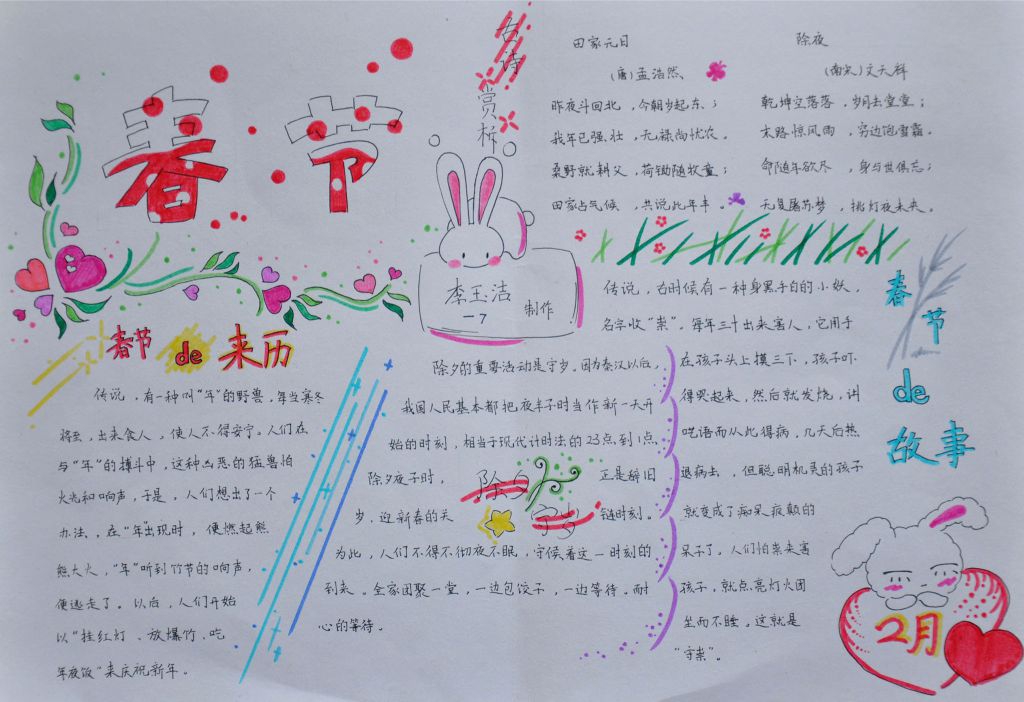 春节
古诗赏析
田家元日
(唐)孟浩然
昨夜斗回北，今朝岁起东；
我年已强壮，无禄尚忧农。
桑野就耕父，荷锄随牧童；
田家占气候，共说此年丰。
除夜
(南宋)文天祥
乾坤空落落，岁月去堂堂；
末路惊风雨，穷边饱雪霜。
命随年欲尽，身与世俱忘；
无复屠苏梦，挑灯夜未央。
李玉洁
一7
制作
春节de来历
传说，有一种叫“年”的野兽，每当寒冬
将至，出来食人，使人不得安宁。人们在
与“年”的搏斗中，这种凶恶的猛兽怕
火光和响声，于是，人们想出了一个
办法，在“年”出现时，便燃起熊
熊大火，“年”听到竹节的响声，
便逃走了。以后，人们开始
以“挂红灯、放爆竹、吃
年夜饭”来庆祝新年。
除夕守岁
除夕的重要活动是守岁。因为秦汉以后，
我国人民基本都把夜半子时当作新一天开
始的时刻，相当于现代计时法的23点到1点，
除夕夜子时，正是辞旧
岁，迎新春的关链时刻。
为此，人们不得不彻夜不眠，守候着这一时刻的
到来。全家团聚一堂，一边包饺子，一边等待。耐
心的等待。
春节de故事
传说，古时候有一种身黑手白的小妖，
名字收“祟”。每年三十出来害人，它用手
在孩子头上摸三下，孩子吓
得哭起来，然后就发烧，讲
呓语而从此得病，几天后热
退病去，但聪明机灵的孩子
就变成了痴呆疯颠的
呆子了。人们怕祟来害
孩子，就点亮灯火团
坐而不睡。这就是
“守祟”。
2月